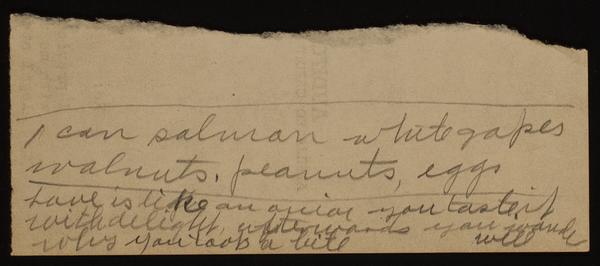 1 can salmon white gapes
walnuts. peanuts, eggs
Love is like an onion you taste it
with delight, afterwards you wonde
why you took a bite will